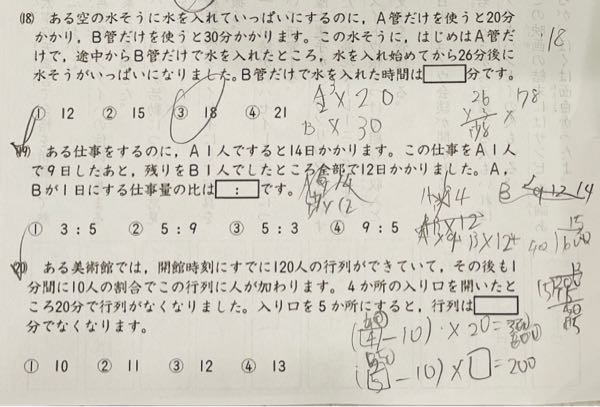 (18) ある空の水そうに水を入れていっぱいにするのに，A管だけを使うと20分
かかり，B管だけを使うと30分かかります。この水そうに，はじめはA管だ
けで，途中からB管だけで水を入れたところ，水を入れ始めてから26分後に
水そうがいっぱいになりました。B管だけで水を入れた時間は□分です。
18
A 3 × 20
B × 30
26
78
① 12 ② 15 ③ 18 ④ 21
(19) ある仕事をするのに，A1人ですると14日かかります。この仕事をA1人
で9日したあと，残りをB1人でしたところ全部で12日かかりました。A，
Bが1日にする仕事量の比は□：□です。
① 3：5 ② 5：9 ③ 5：3 ④ 9：5
(20) ある美術館では，開館時刻にすでに120人の行列ができていて，その後も1
分間に10人の割合でこの行列に人が加わります。4か所の入り口を開いたと
ころ20分で行列がなくなりました。入り口を5か所にすると，行列は□
分でなくなります。
(4 − 10) × 20 =
(5 − 10) × □ = 200
① 10 ② 11 ③ 12 ④ 13